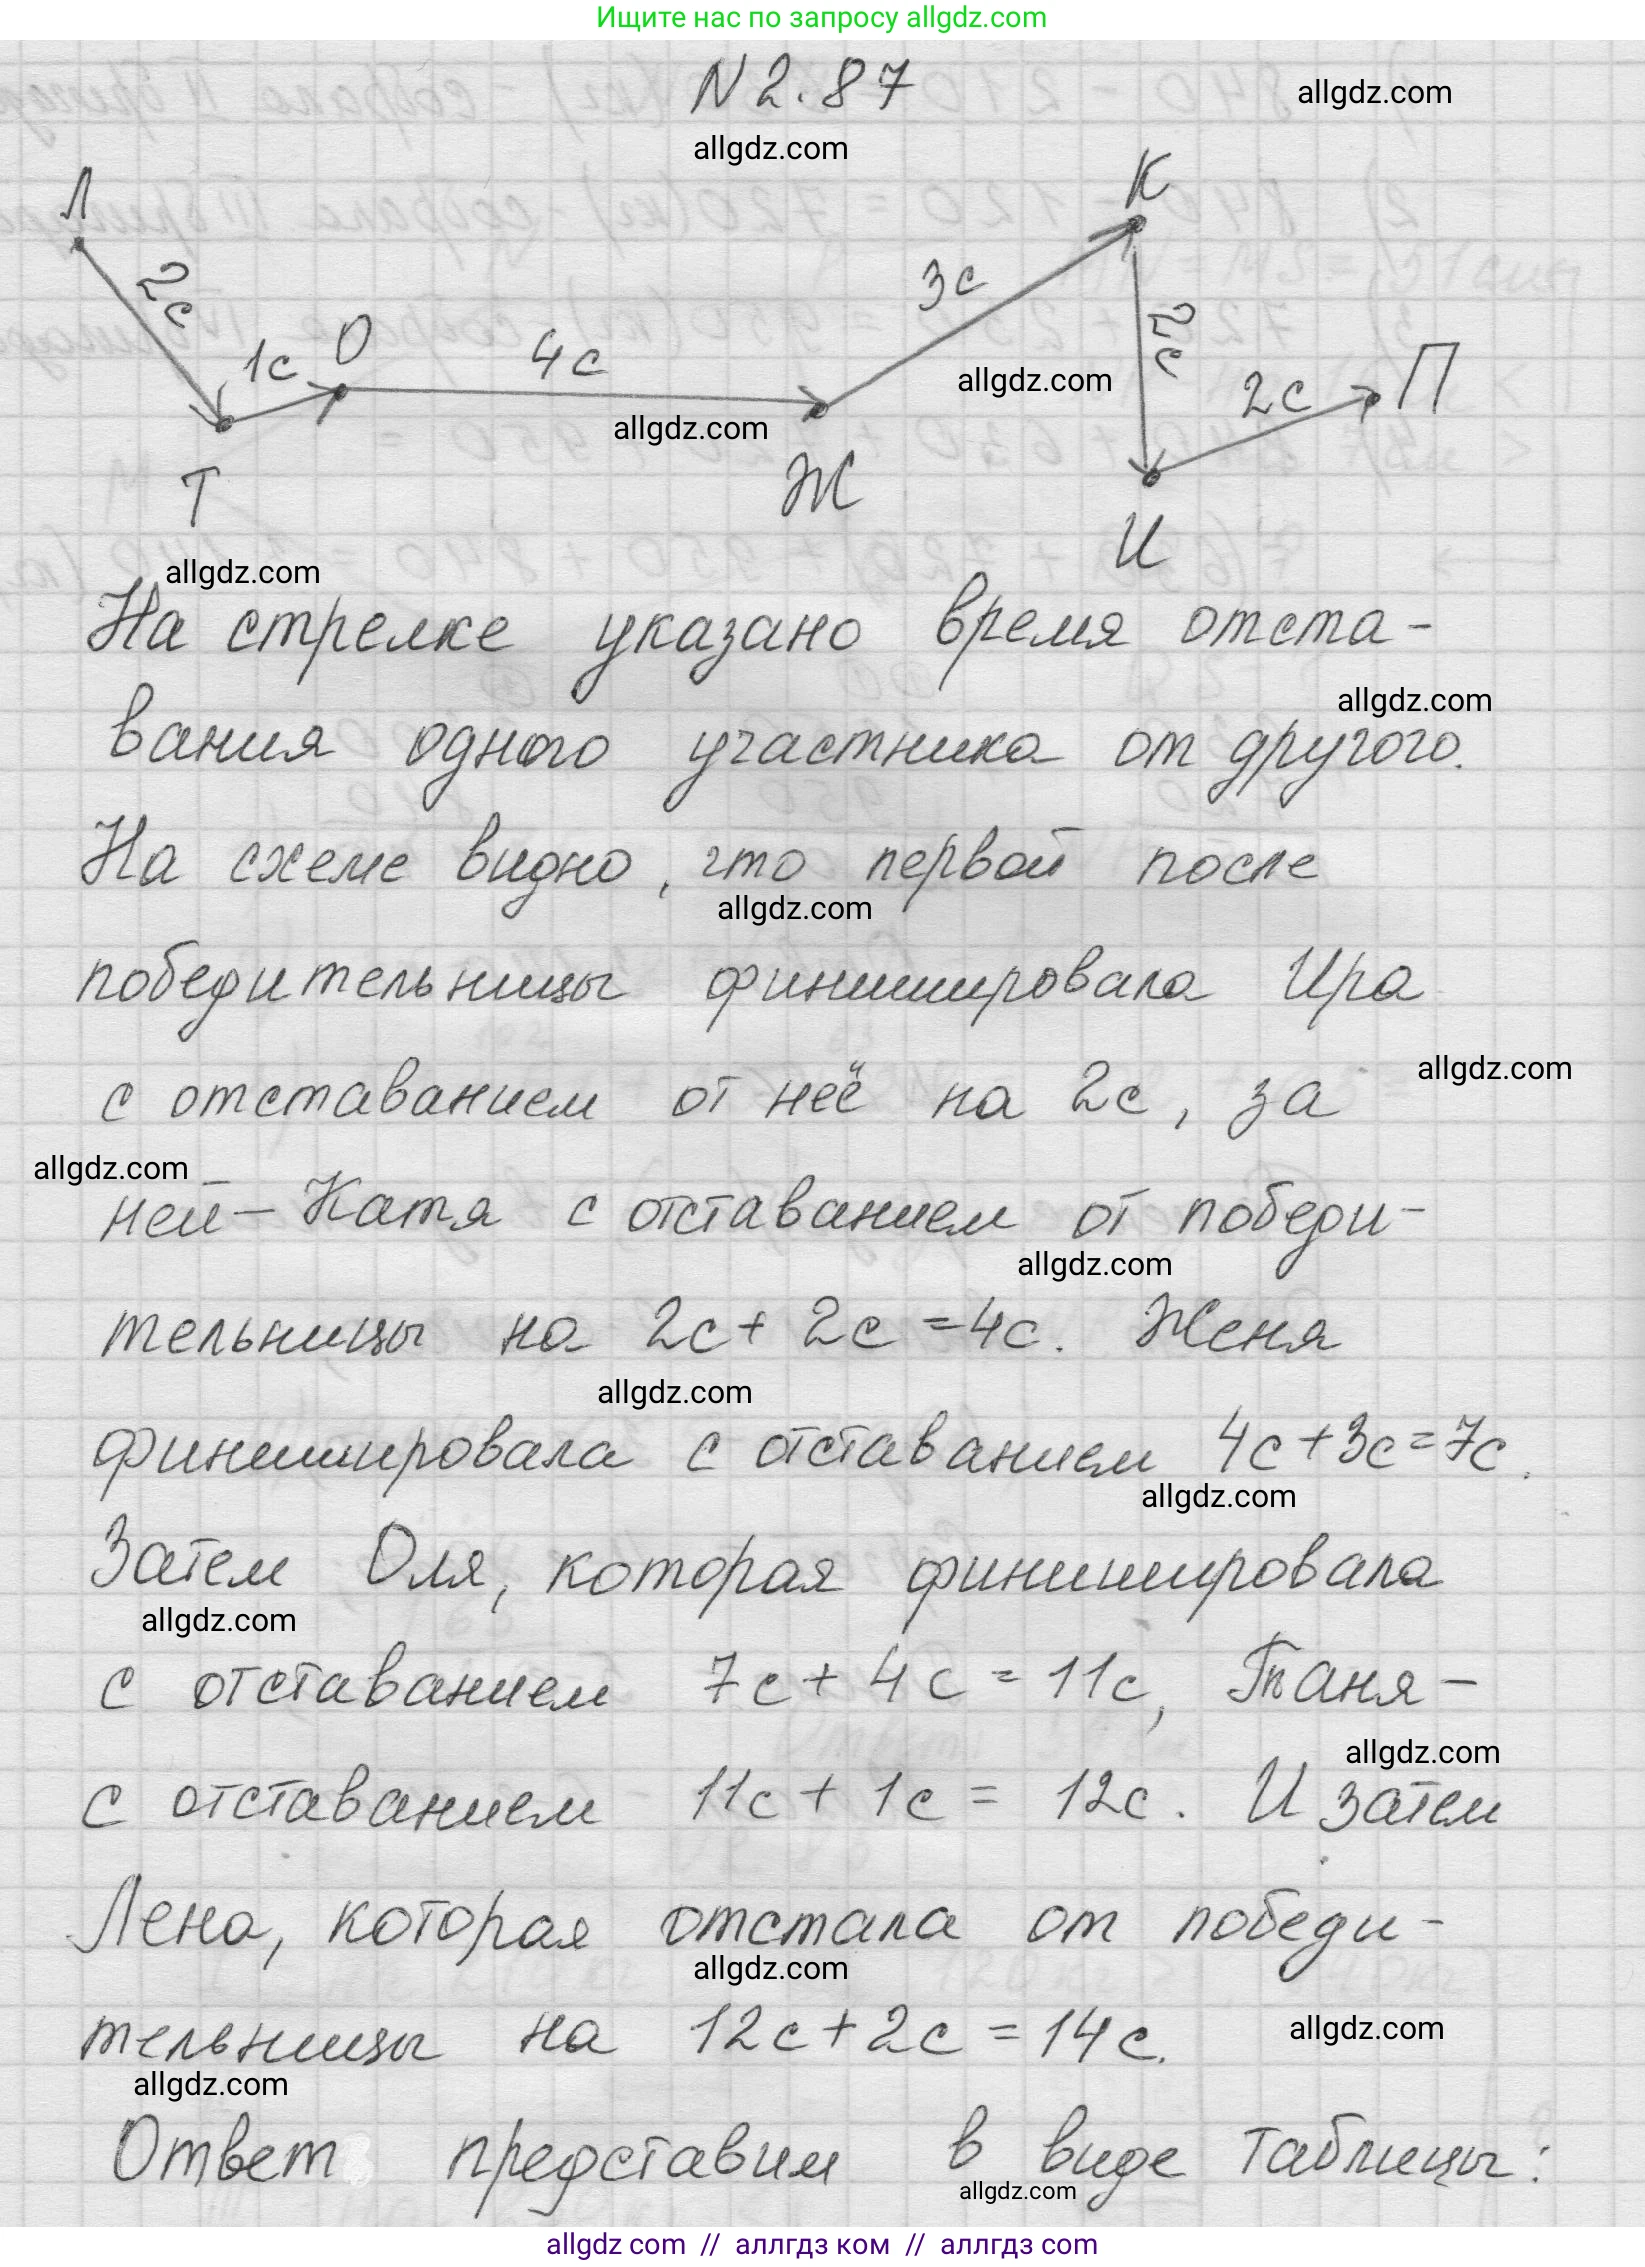 Ищите нас по запросу allgdz.com
N 2.87
allgdz.com
allgdz.com
Л
К
2с
1с
О
4с
3с
2с
2с
П
allgdz.com
allgdz.com
Т
Ж
И
allgdz.com
На стрелке указано время отста-
allgdz.com
вания одного участника от другого.
На схеме видно, что первой после
allgdz.com
победительницы финишировала Ира
с отставанием от неё на 2с, за
allgdz.com
allgdz.com
ней – Катя с отставанием от победи-
allgdz.com
тельницы на 2с + 2с = 4с. Женя
allgdz.com
финишировала с отставанием 4с + 3с = 7с.
allgdz.com
Затем Оля, которая финишировала
allgdz.com
с отставанием 7с + 4с = 11с, Таня –
allgdz.com
с отставанием 11с + 1с = 12с. И затем
Лена, которая отстала от победи-
allgdz.com
тельницы на 12с + 2с = 14с.
allgdz.com
allgdz.com
Ответ представим в виде таблицы:
allgdz.com
allgdz com // аллгдз ком // аллгдз com